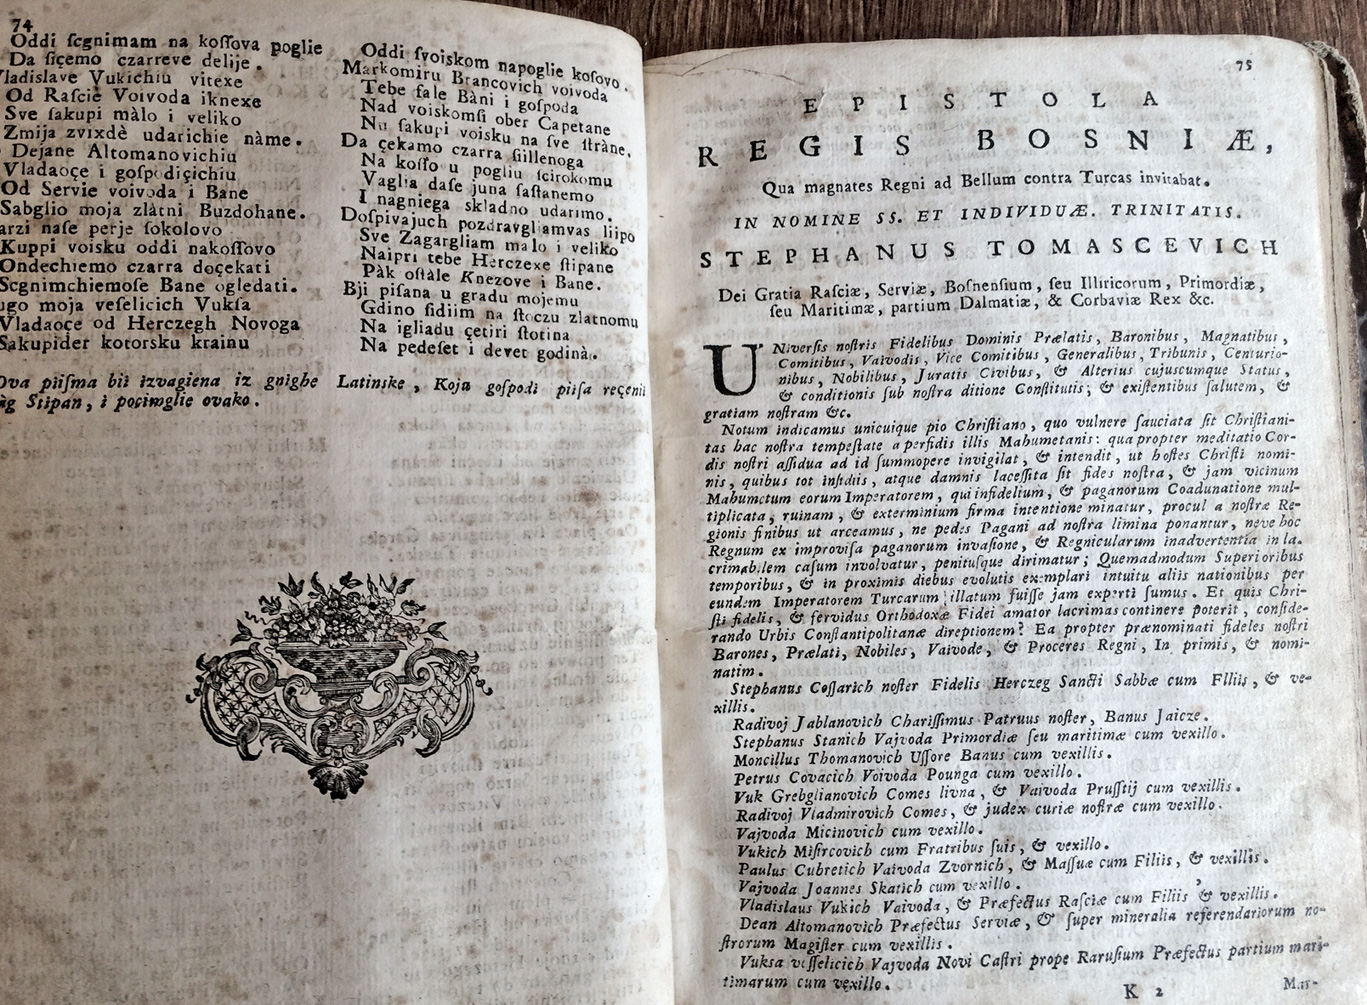 74
Oddi segnimam na kossova poglie
Da siçemo czarreve delije.
Vladislave Vukichiu vitexe
Od Rascie Voivoda iknexe
Sve sakupi màlo i veliko
Zmija zvixdè udarichie nàme.
Dejane Altomanovichiu
Vladaoçe i gospodiçichiu
Od Servie voivoda i Bane
Sabglio moja zlàtni Buzdohane.
arzi nase perje sokolovo
Kuppi voisku oddi nakossovo
Ondechiemo czarra doçekati
Segnimchiemose Bane ogledati.
ugo moja veselicich Vuksa
Vladaoçe od Herczegh Novoga
Sakupider kotorsku krainu
Oddi svoiskom napoglie kosovo.
Markomiru Brancovich voivoda
Tebe fale Bàni i gospoda
Nad voiskomsi ober Capetane
Nu sakupi voisku na sve stràne.
Da çekamo czarra siillenoga
Na kosso u pogliu scirokomu
Vaglia dase juna sastanemo
I nagniega skladno udarimo.
Dospivajuch pozdravgliamvas liipo
Sve Zagargliam malo i veliko
Naipri tebe Herczexe stipane
Pàk ostàle Knezove i Bane.
Bji pisana u gradu mojemu
Gdino sidiim na stoczu zlatnomu
Na igliadu çetiri stotina
Na pedeset i devet godinà.
Ova piisma bii izvagiena iz gnighe Latinske, Koja gospodi piisa reçenii
àg Stipan, i pocimglie ovako.
75
EPISTOLA
REGIS BOSNIÆ,
Qua magnates Regni ad Bellum contra Turcas invitabat.
IN NOMINE SS. ET INDIVIDUÆ. TRINITATIS.
STEPHANUS TOMASCEVICH
Dei Gratia Rasciæ, Serviæ, Bosnensium, seu Illiricorum, Primordiæ,
seu Maritimæ, partium Dalmatiæ, & Corbaviæ Rex &c.
UNiversis nostris Fidelibus Dominis Prælatis, Baronibus, Magnatibus,
Comitibus, Vaivodis, Vice Comitibus, Generalibus, Tribunis, Centurio-
nibus, Nobilibus, Juratis Civibus, & Alterius cujuscumque Status,
& conditionis sub nostra ditione Constitutis, & existentibus salutem, &
gratiam nostram &c.
Notum indicamus unicuique pio Christiano, quo vulnere sauciata sit Christiani-
tas hac nostra tempestate a perfidis illis Mahumetanis: quapropter meditatio Cor-
dis nostri assidua ad id summopere invigilat, & intendit, ut hostes Christi nomi-
nis, quibus tot insidiis, atque damnis lacessita sit fides nostra, & jam vicinum
Mahumetum eorum Imperatorem, qui infidelium, & paganorum Coadunatione mul-
tiplicata, ruinam, & exterminium firma intentione minatur, procul a nostræ Re-
gionis finibus ut arceamus, ne pedes Pagani ad nostra limina ponantur, neve hoc
Regnum ex improvisa paganorum invasione, & Regnicularum inadvertentia in la-
crimabilem casum involvatur, penitusque dirimatur; Quemadmodum Superioribus
temporibus, & in proximis diebus evolutis exemplari intuitu aliis nationibus per
eundem Imperatorem Turcarum illatum fuisse jam experti sumus. Et quis Chri-
sti fidelis, & fervidus Orthodoxæ Fidei amator lacrimas continere poterit, conside-
rando Urbis Constantipolitanæ direptionem? Ea propter prænominati fideles nostri
Barones, Prælati, Nobiles, Vaivode, & Proceres Regni, In primis, & nomi-
natim.
Stephanus Cossarich noster Fidelis Herczeg Sancti Sabbæ cum Flliis, & ve-
xillis.
Radivoj Jablanovich Charissimus Patruus noster, Banus Jaicze.
Stephanus Stanich Vajvoda Primordiæ seu maritimæ cum vexillo.
Moncillus Thomanovich Ussore Banus cum vexillis.
Petrus Covacich Voivoda Pounga cum vexillo.
Vuk Grebglianovich Comes livna, & Vaivoda Prusstij cum vexillis.
Radivoj Vladmirovich Comes, & judex curiæ nostræ cum vexillo.
Vajvoda Micinovich cum vexillo.
Vukich Misircovich cum Fratribus suis, & vexillo.
Paulus Cubretich Vaivoda Zvornich, & Massuæ cum Filiis, & vexillis.
Vajvoda Joannes Skatich cum vexillo.
Vladislaus Vukich Vaivoda, & Præfectus Rasciæ cum Filiis & vexillis.
Dean Altomanovich Præfectus Serviæ, & super mineralia referendariorum no-
strorum Magister cum vexillis.
Vuksa vesselicich Vajvoda Novi Castri prope Rarusium Præfectus partium mari-
timarum cum vexillo.
K 2 Mar-